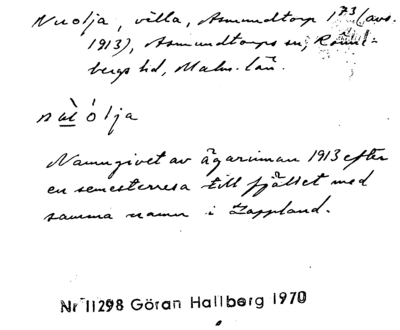 Nuolja, villa, Asmundtorp 1⁷³ (avs.
1913), Asmundtorps sn, Rönne-
bergs hd, Malm. län.
nu̲ólja
Namngivet av ägarinnan 1913 efter
en semesterresa till fjället med
samma namn i Lappland.
Nr 11298 Göran Hallberg 1970